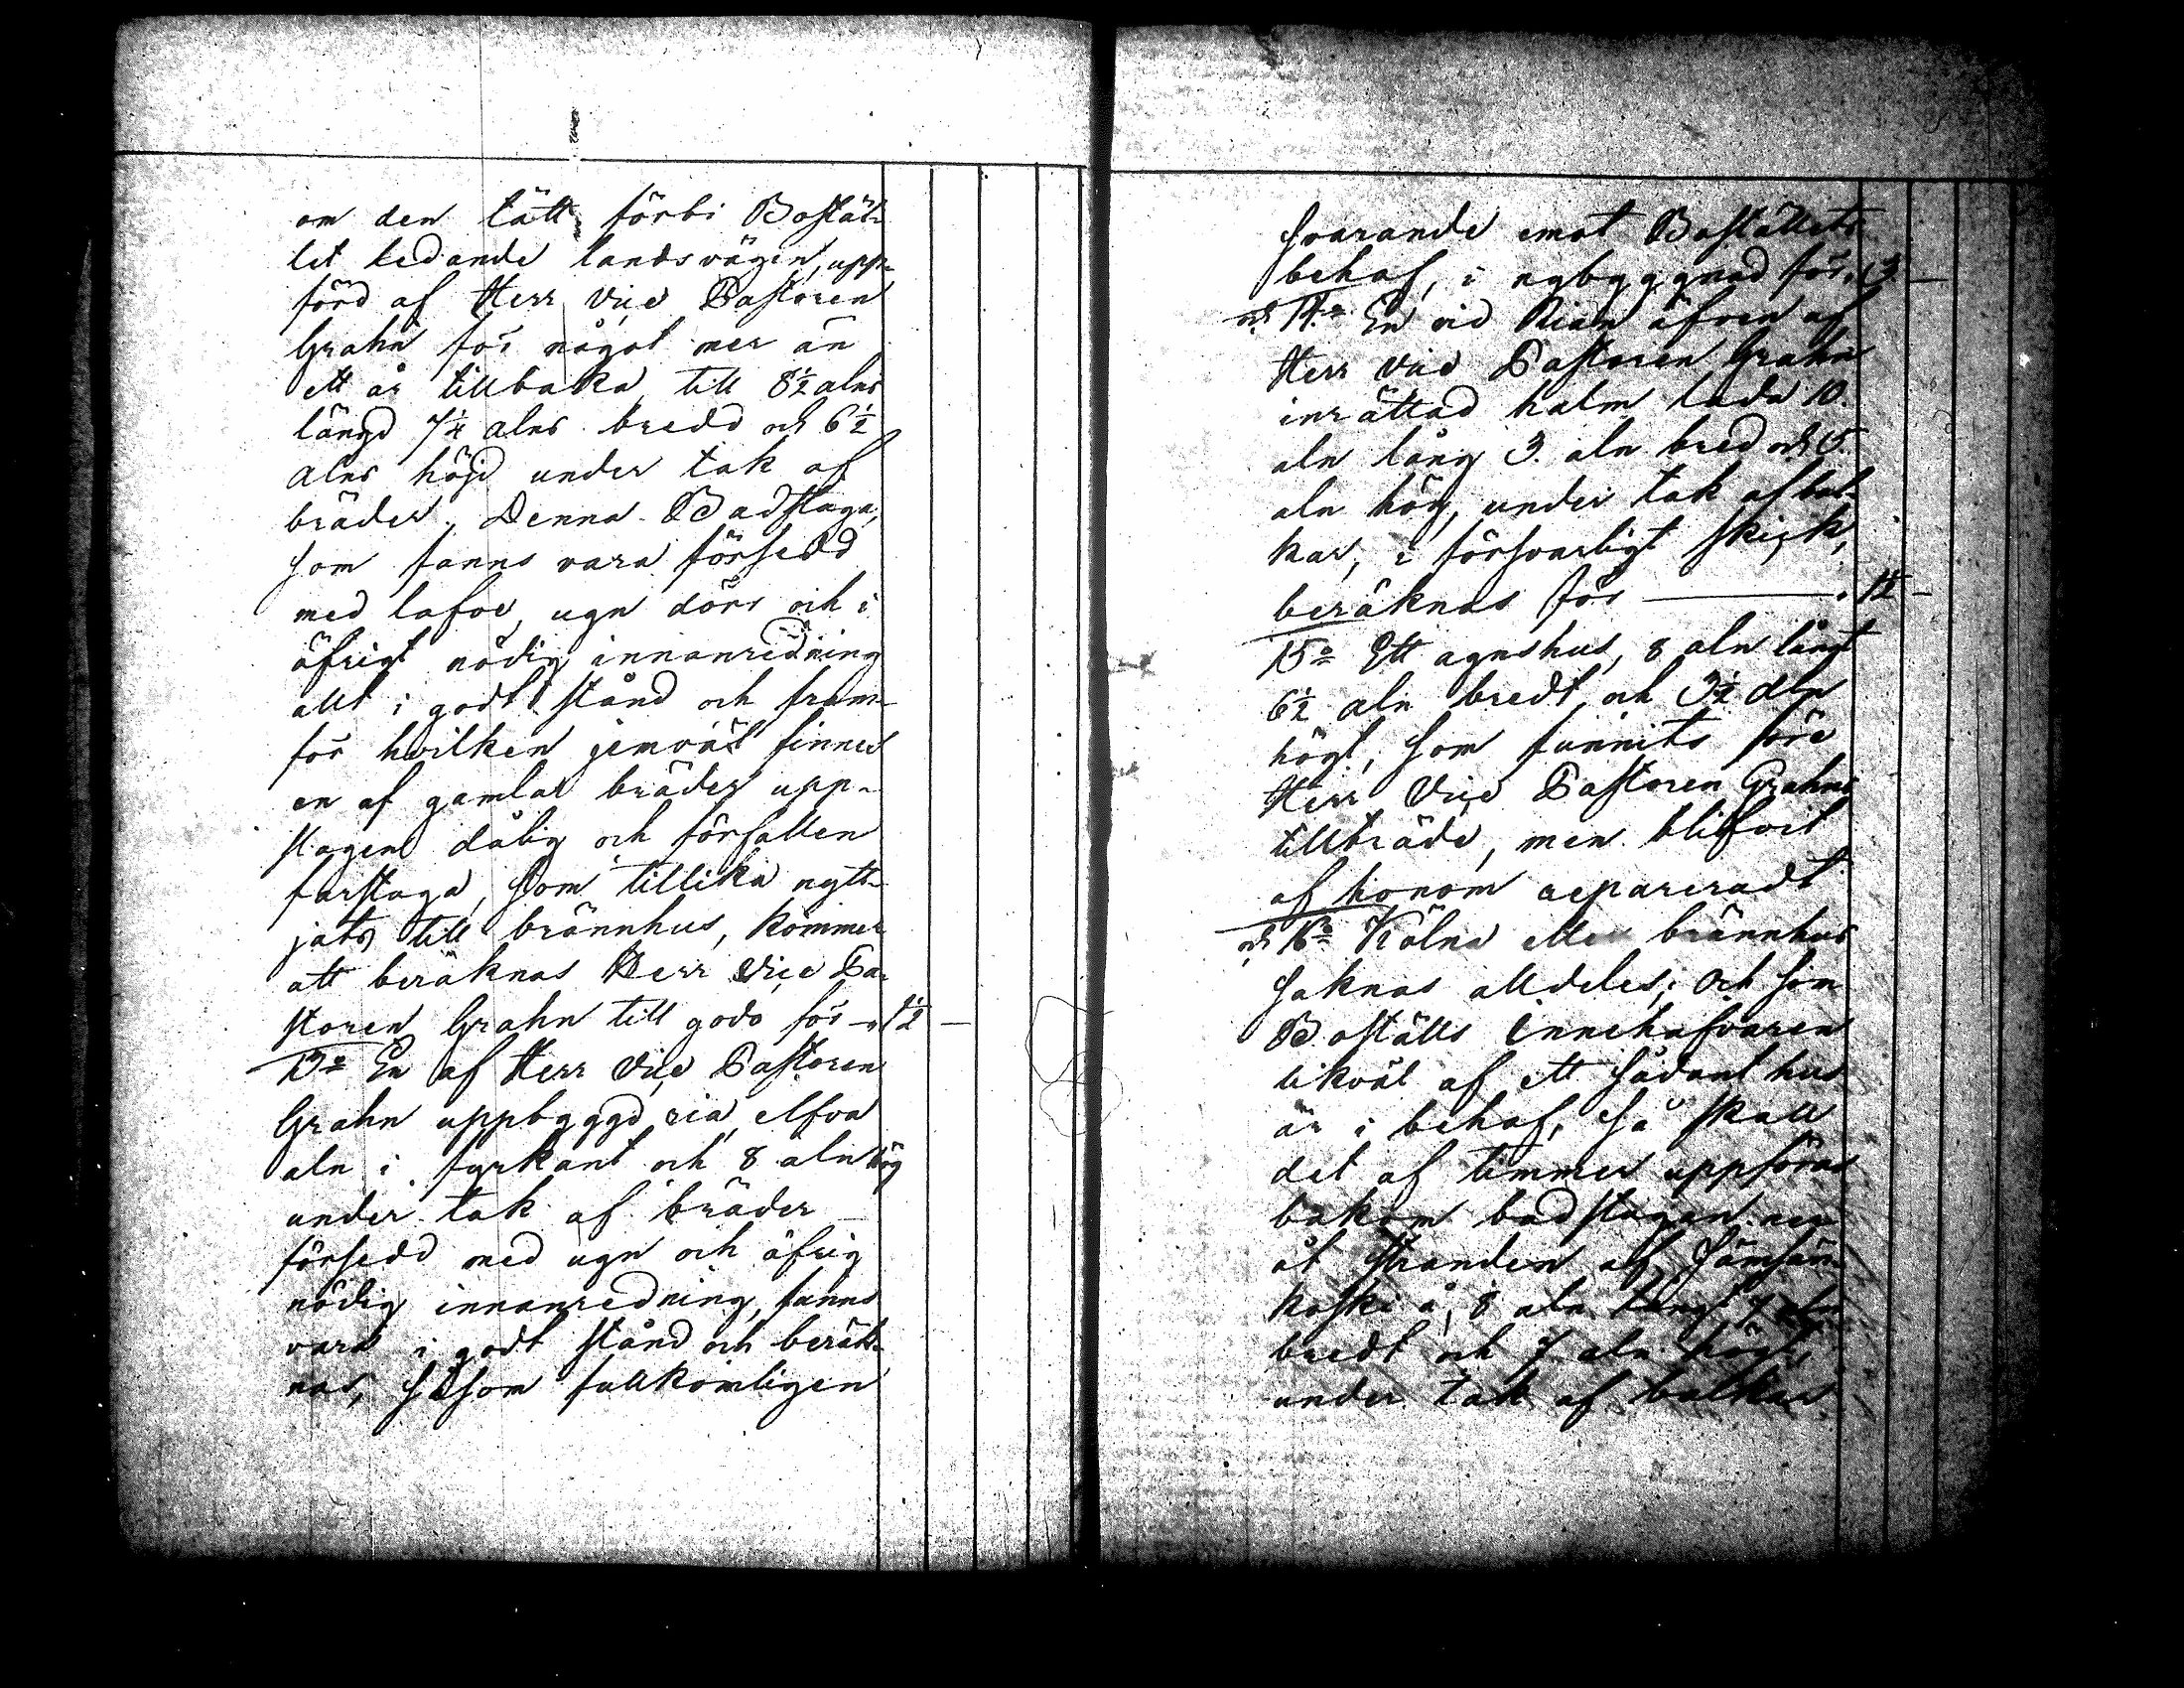 om den tätt förbi Bostäl-
let ledande landsvägen, upp-
förd af Herr Vice Pastoren
Grahn för något mer än
ett år tillbaka till 8½ alns
längd 7¼ alns bredd och 6½
alns höjd under tak af
bräder. Denna Badstuga,
som fanns vara försedd
med lafve, ugn dörr och i
öfrigt nödig innanredning
allt i godt stånd och fram-
för hvilken jemväl finnes
en af gamlar bräder upp-
slagen dålig och förfallen
farstuga, som tillika nytt-
jats till brännhus, kommer
att beräknas Herr Vice Pa-
storen Grahn till godo för — „ 1½ —
13:o En af Herr Vice Pastoren
Grahn uppbyggd ria, elfva
aln i fyrkant och 8 aln hög
under tak af bräder
försedd med ugn och öfrig
nödig innanredning, fanns
vara i godt stånd och beräk-
nas, såsom fullkomligen
svarande emot Boställets
behof, i nybyggnad för „ 3 —
och 14:o En vid Rian äfven af
Herr Vice Pastoren Grahn
inrättad halm lada 10.
aln lång 3. aln bred och 5.
aln hög, under tak af bal-
kar, i försvarligt skick,
beräknas för — „ ¼ —
15:o Ett agnshus, 8 aln långt
6½ aln bredt och 3½ aln
högt, som funnits före
Herr Vice Pastoren Grahns
tillträde, men blifvit
af honom repareradt
och 16:o Kölna eller brännhus
saknas alldeles; Och som
Boställs Innehafvaren
likväl af ett sådant hus
är i behof, så skall
det af timmer uppföras
bakom badstugan ner
åt stranden af Jämsän-
koski å, 8 aln långt 7 aln
bredt och 7 aln högt,
under tak af balkar